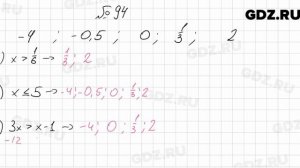 GDZ.RU
№ 94
-4 ; -0,5 ; 0 ; 1/3 ; 2
) x > 1/6 → 1/3; 2
) x ≤ 5 → -4; -0,5; 0; 1/3; 2
) 3x > x-1 → -4; 0; 1/3; 2
-12
GDZ.RU